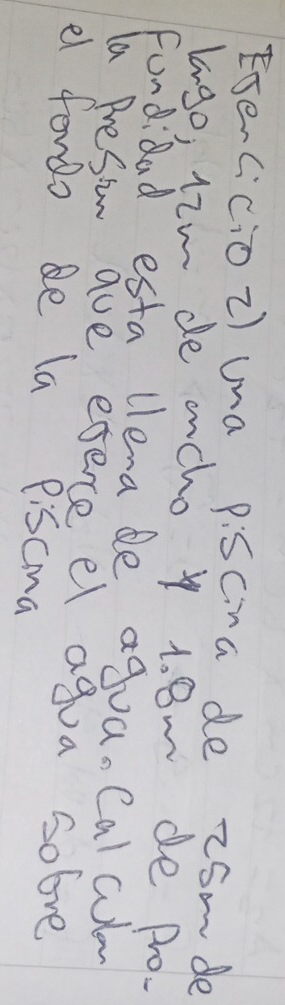 Ejercicio 2) Una piscina de 25m de
largo, 12m de ancho y 1.8m de Pro-
fundidad esta llena de agua. Calcular
la Presion que ejerce el agua sobre
el fondo de la Piscina